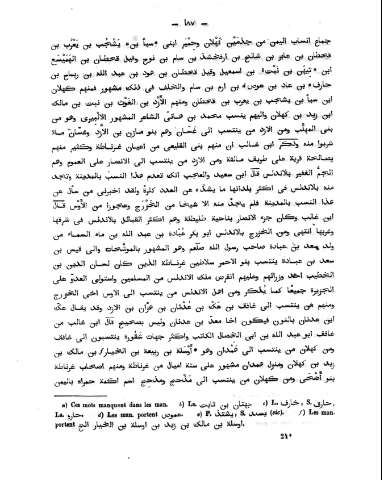 – ١٨٧ –
جماع انساب اليمن من جذمين كهلان وحمير ابنى سبا بن يشجب بن يعرب بن
قحطان بن عابر بن شالخ بن ارفخشذ بن سام بن نوح وقيل قحطان بن الهميسع
ابن تيمن بن نبت بن اسمعيل وقيل قحطان بن هود بن عبد الله بن رباح بن
حارف بن عاد بن عوص بن ارم بن سام والخلف فى ذلك مشهور فمنهم كهلان
ابن سبا بن يشجب بن يعرب بن قحطان ومنهم الأزد بن الغوث بن نبت بن مالك
ابن زيد بن كهلان واليهم ينسب محمد بن هانى الشاعر المشهور الالبيرى وهو من
بنى المهلب ومن الازد من ينتسب الى غسان وهم بنو مازن بن الأزد وغسان ماء
شربوا منه وذكر ابن غالب ان منهم بنى القليعى من اعيان غرناطة وكثير منهم
بصالحة قرية على طريف مالقة ومن الازد من ينتسب الى الانصار على العموم وهم
الجم الغفير بالاندلس قال ابن سعيد والعجب انك تعدم هذا النسب بالمدينة وتجد
منه بالاندلس فى اكثر بلدانها ما يشذ عن العدد كثرة ولقد اخبرنى من سأل عن
هذا النسب بالمدينة فلم يجد منه الا شيخا من الخزرج وعجوزا من الأوس قال
ابن غالب وكان جزء الانصار بناحية طليطلة وهم اكثر القبائل بالاندلس فى شرقها
وغربها انتهى ومن الخزرج بالاندلس ابو بكر عبادة بن عبد الله بن ماء السماء من
ولد سعد بن عبادة صاحب رسول الله صلعم وهو المشهور بالموشحات والى قيس بن
سعد بن عبادة ينتسب بنو الاحمر سلاطين غرناطة الذين كان لسان الدين بن
الخطيب احد وزرائهم وعليهم انقرض ملك الاندلس من المسلمين واستولى العدو على
الجزيرة جميعا كما يذكر ومن اهل الاندلس من ينتسب الى الاوس اخى الخزرج
ومنهم من ينتسب الى غافق بن عك بن عدثان بن عزان بن الازد وقد يقال عك
ابن عدنان بالنون فيكون اخا معد بن عدنان وليس بصحيح قال ابن غالب من
غافق ابو عبد الله بن ابى الخصال الكاتب واكثر جهات شقورة ينتسبون الى غافق
ومن كهلان من ينتسب الى همدان وهو أوسلة بن ربيعة بن الخيار بن مالك بن
زيد بن كهلان ومنزل همدان مشهور على ستة اميال من غرناطة ومنهم اصحاب غرناطة
بنو أضحى ومن كهلان من ينتسب الى مذحج ومذحج اسم اكمة حمراء باليمن
a) Ces mots manquent dans les man. b) La. بهتان بن ثابت c) L. خارف, S. حارق,
La. حارو. d) Les man. portent عموص e) P. يشتد, S. يسند (sic). f) Les man.
portent اوسلة بن مالك بن زيد بن اوسلة بن الخيار الخ
24*